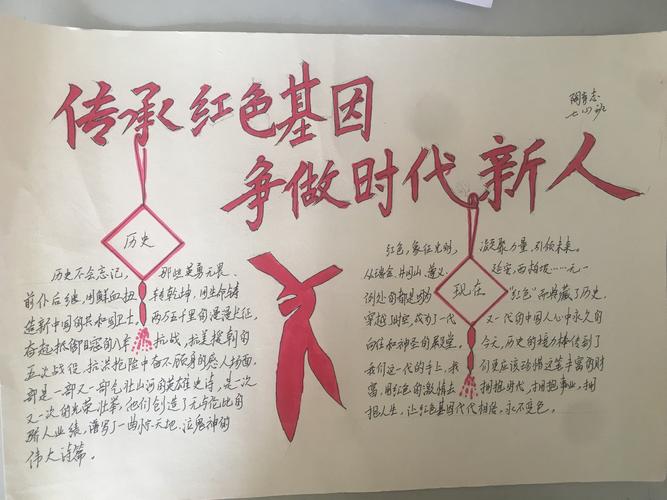 传承红色基因
争做时代新人
七 班
历史
历史不会忘记，那些英勇无畏、
前仆后继，用鲜血扭转乾坤，用生命铸
造新中国的共和国卫士，两万五千里的漫漫长征，
奋起抵御日寇的八年抗战，抗美援朝的
五次战役，抗洪抢险中奋不顾身的感人场面，
都是一部又一部气壮山河的英雄史诗，是一次
又一次的光荣壮举，他们创造了无与伦比的
骄人业绩，谱写了一曲惊天地、泣鬼神的
伟大诗篇。
现在
红色，象征光明，凝聚力量，引领未来。
从瑞金、井冈山、遵义、延安，西柏坡……无一
例外的都是 “红色” 典藏了历史，
穿越时空，成为了一代又一代的中国人心中永久的
向往和神圣的殿堂。今天，历史的接力棒传到了
我们这一代的手上，我们更应该珍惜这笔丰富的财
富，用红色的激情去拥抱时代，拥抱事业，拥
抱人生，让红色基因代代相传，永不变色。